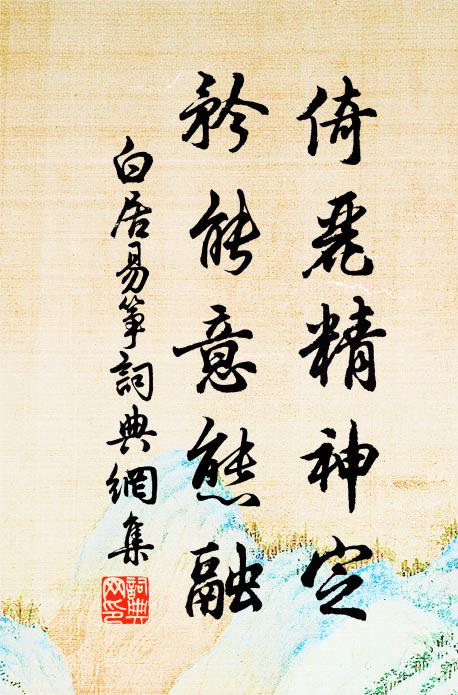 倚麗精神定
矜能意態融
白居易箏詞典網集
詞典网印